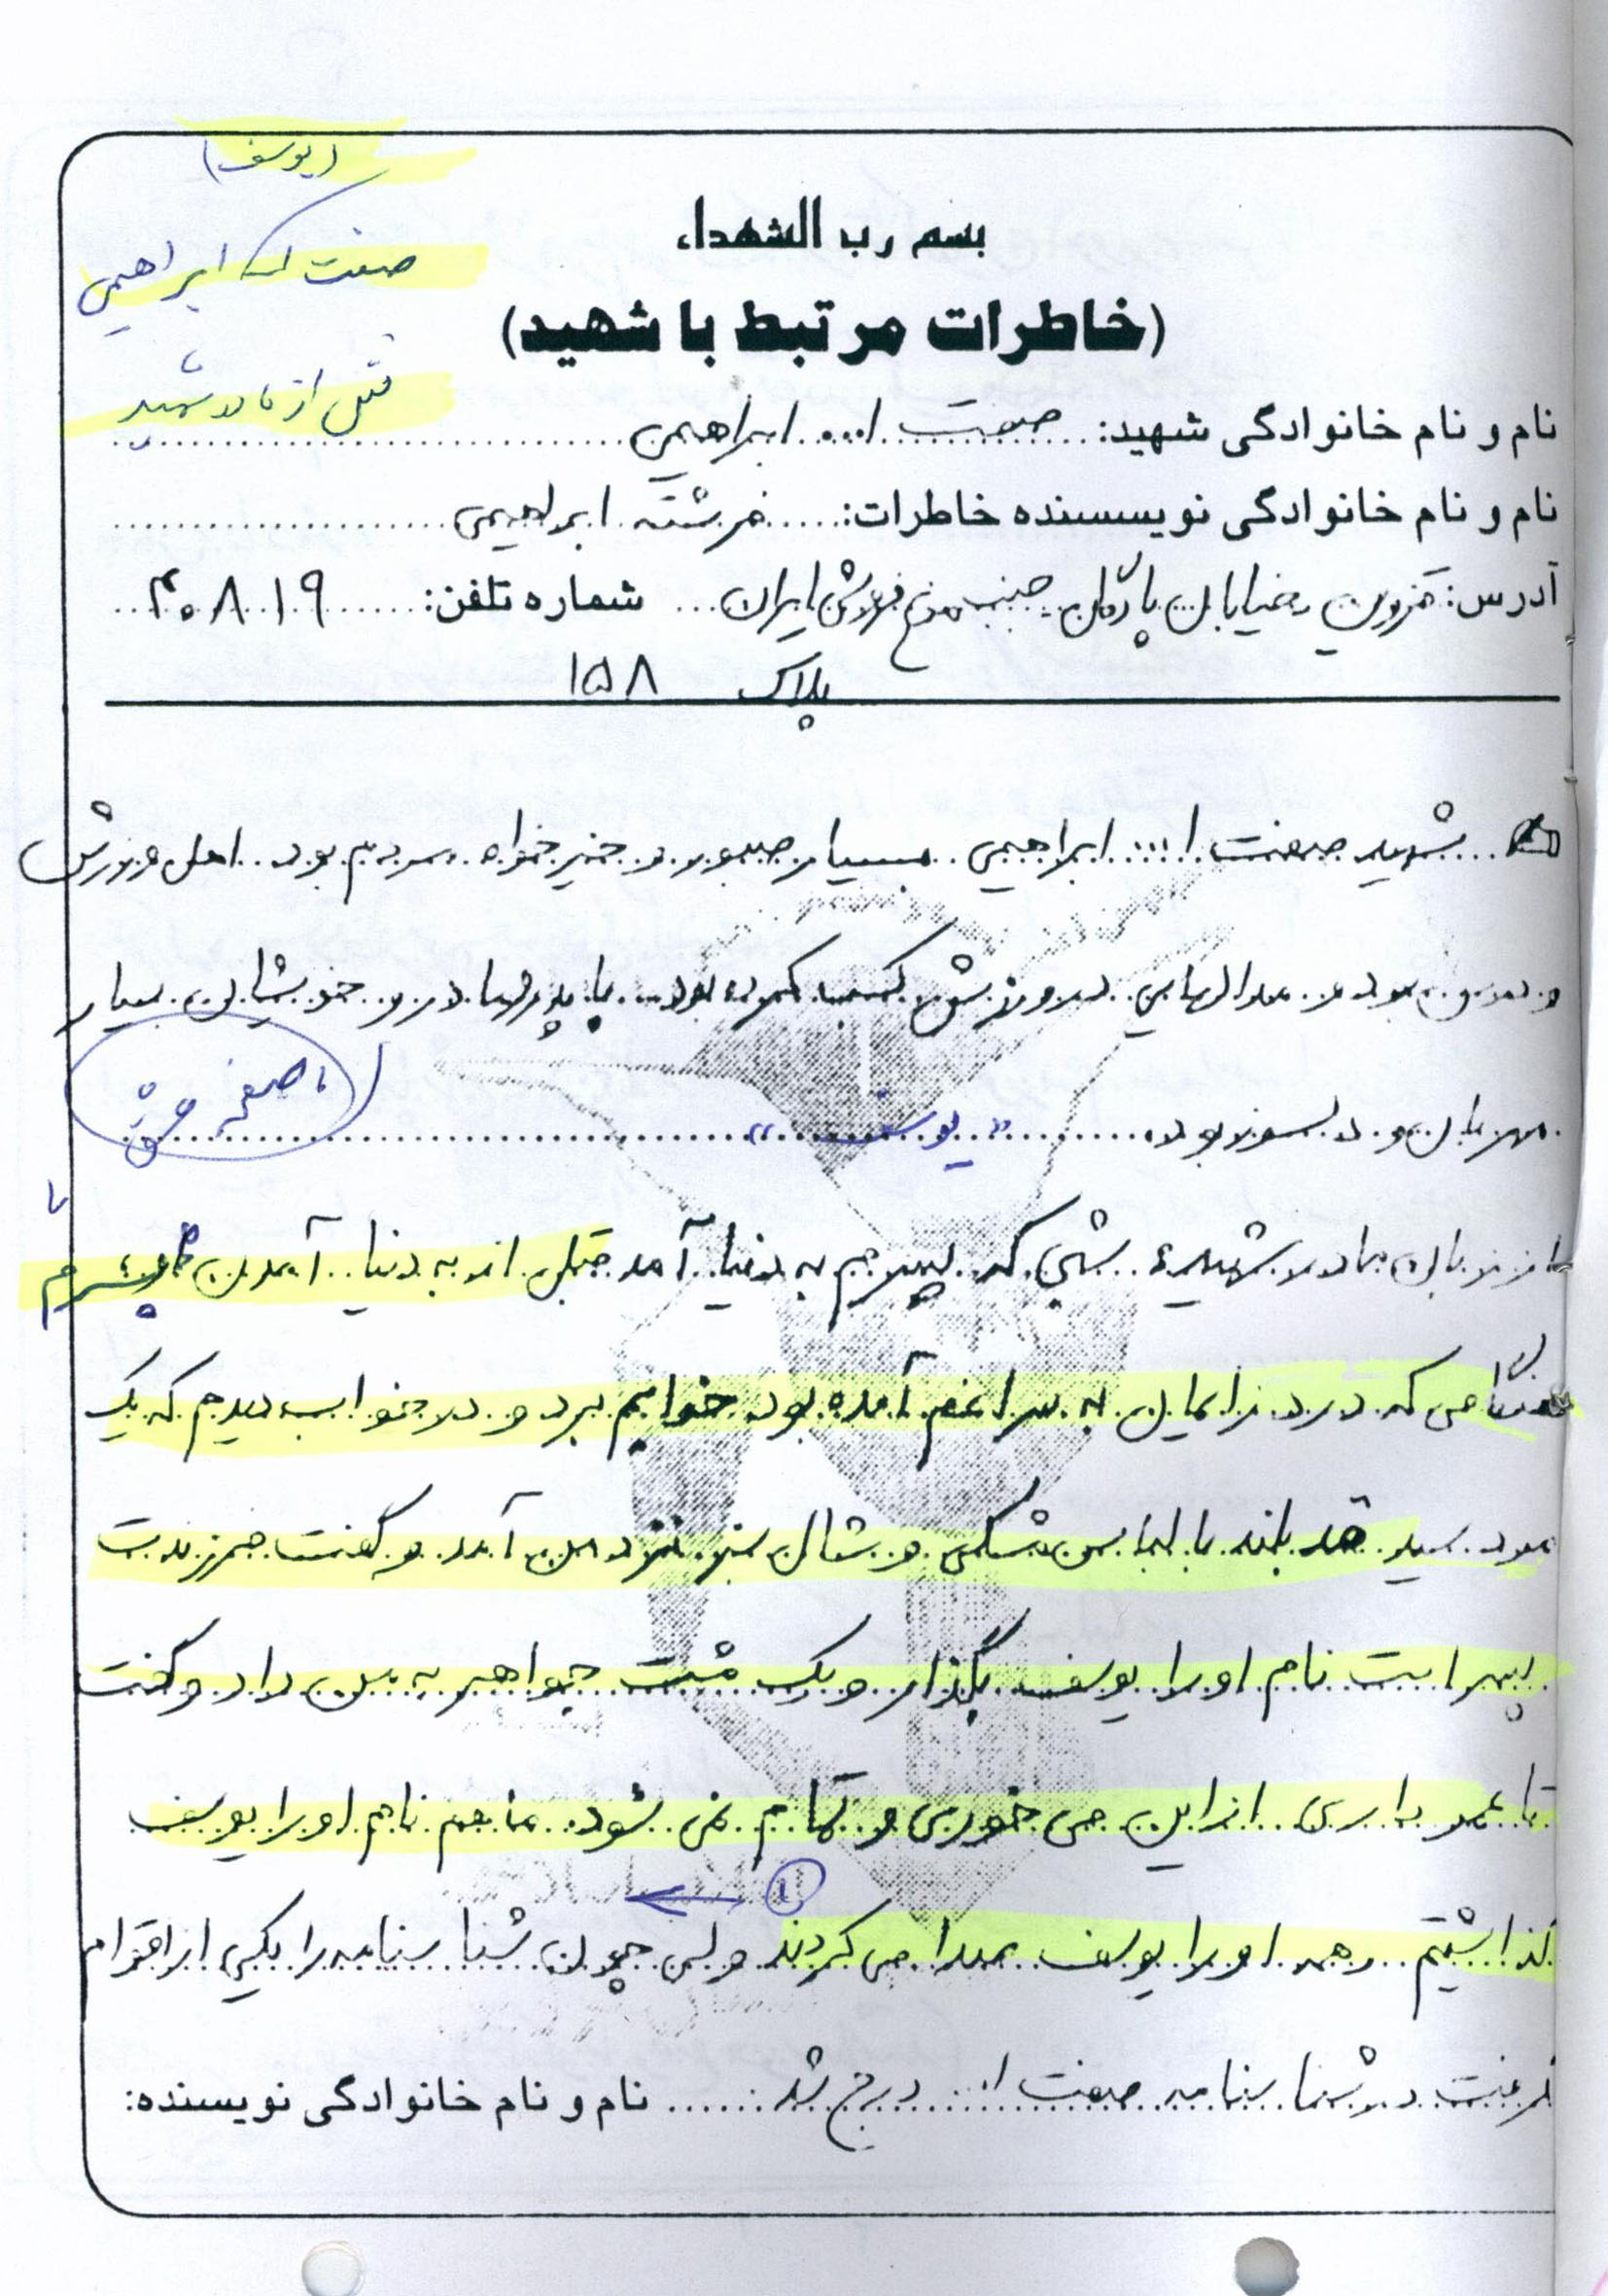 (یوسف)
صفت اله ابراهیمی
نقل از مادر شهید
بسم رب الشهداء
(خاطرات مرتبط با شهید)
نام و نام خانوادگی شهید: صفت ا... ابراهیمی
نام و نام خانوادگی نویسنده خاطرات: فرشته ابراهیمی
آدرس: قزوین خیابان پادگان جنب مرغ فروشی ایران شماره تلفن: ۴۰۸۱۹
پلاک ۱۵۸
شهید صفت ا... ابراهیمی بسیار صبور و خیر خواه مردم بود. اهل ورزش
و بود و مدالهایی در ورزش کسب کرده بود. با پدر و مادر و خویشان بسیار
مهربان و دلسوز بود. «یوسف»
از زبان مادر شهید: شبی که پسرم به دنیا آمد قبل از به دنیا آمدن پسرم
هنگامی که درد زایمان به سراغم آمده بود خوابم برد و در خواب دیدم که یک
مرد سید قد بلند با لباس مشکی و شال سبز نزد من آمد و گفت فرزندت
پسر است نام او را یوسف بگذار و یک مشت جواهر به من داد و گفت
تا عمر داری از این می خوری و تمام نمی شود. ما هم نام او را یوسف
گذاشتیم. همه او را یوسف صدا می کردند ولی چون شناسنامه را یکی از اقوام
۱
گرفت در شناسنامه صفت ا... درج شد. نام و نام خانوادگی نویسنده: